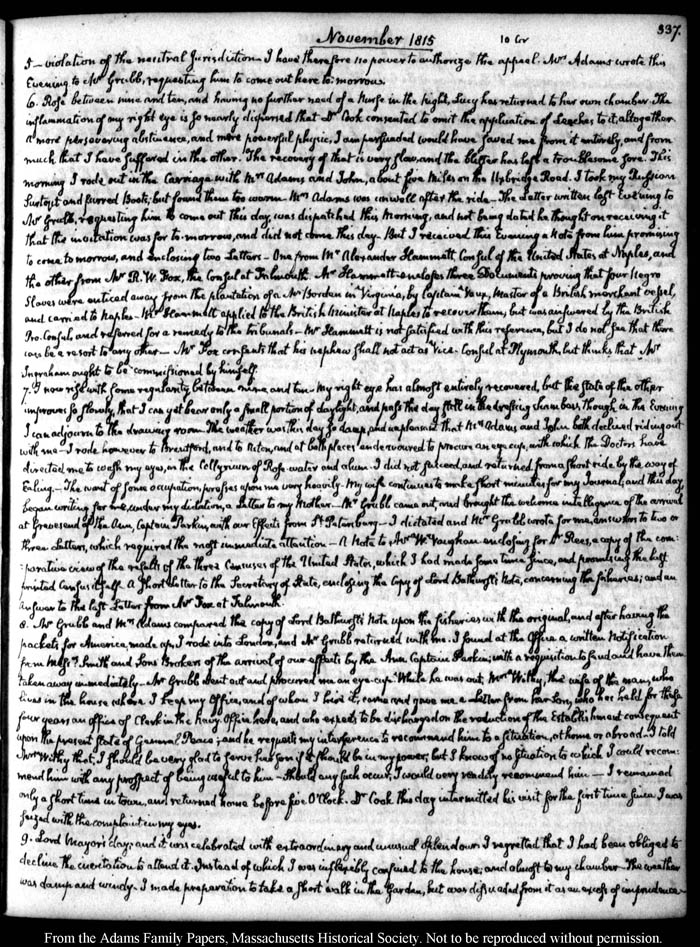 337.
November 1815
10 Cr
5 — violation of the neutral Jurisdiction. I have therefore no power to authorize the appeal. Mrs Adams wrote this
Evening to Mr Grubb, requesting him to come out here to-morrow.
6. Rose between nine and ten, and having no further need of a Nurse in the night, Lucy has returned to her own chamber. The
inflammation of my right eye is so nearly dispersed that Dr Cook consented to omit the application of Leeches to it, altogether.
A more persevering abstinence, and more powerful physic, I am persuaded would have saved me from it entirely, and from
much that I have suffered in the other. The recovery of that is very slow, and the blister has left a troublesome sore. This
morning I rode out in the Carriage with Mrs Adams and John, about five Miles on the Uxbridge Road. I took my Russian
Surtout and furred Boots, but found them too warm. Mrs Adams was unwell after the ride — The Letter written last Evening to
Mr Grubb, requesting him to come out this day, was dispatched this Morning, and not being dated he thought on receiving it
that the invitation was for to-morrow, and did not come this day. But I received this Evening a Note from him promising
to come to morrow, and enclosing two Letters — One from Mr Alexander Hammett, Consul of the United States at Naples, and
the other from Mr R. W. Fox, the Consul at Falmouth. Mr Hammett encloses three Documents proving that four Negro
Slaves were enticed away from the plantation of a Mr Borden in Virginia, by Captain Vaux, Master of a British merchant vessel,
and carried to Naples — Mr Hammett applied to the British Minister at Naples to recover them, but was answered by the British
Pro-Consul, and referred for a remedy to the tribunals — Mr Hammett is not satisfied with this reference, but I do not see that there
can be a resort to any other — Mr Fox consents that his nephew shall not act as Vice-Consul at Plymouth, but thinks that Mr
Ingraham ought to be commissioned by himself.
7. I now rise with some regularity, between nine, and ten — My right eye has almost entirely recovered, but the state of the other
improves so slowly, that I can yet bear only a small portion of daylight, and pass the day still in the dressing chamber, though in the Evening
I can adjourn to the drawing room. The weather was this day so damp, and unpleasant that Mrs Adams and John both declined riding out
with me — I rode however to Brentford, and to Acton, and at both places endeavoured to procure an eye cup, with which the Doctors have
directed me to wash my eyes, in the Collyrium of Rose water and alum. I did not succeed, and returned from a short ride by the way of
Ealing. — The want of some occupation, presses upon me very heavily. My wife continues to make short minutes for my Journal, and this day
began writing for me, under my dictation, a Letter to my Mother — Mr Grubb came out, and brought the welcome intelligence of the arrival
at Gravesend of the Ann, Captain Parkin, with our Effects from St Petersburg — I dictated and Mr Grubb wrote for me, answers to two or
three Letters, which required the most immediate attention — A Note to Mr W. Vaughan enclosing for Dr Rees, a copy of the com:
:parative view of the results of the three Censuses of the United States, which I had made some time since, and promising the last
printed Census itself. A short Letter to the Secretary of State, enclosing the Copy of Lord Bathurst's Note, concerning the fisheries; and an
answer to the last Letter from Mr Fox at Falmouth.
8. Mr Grubb and Mrs Adams compared the copy of Lord Bathurst's Note upon the fisheries with the original, and after having the
packets for America, made up, I rode into London, and Mr Grubb returned with me. I found at the Office a written Notification
from Messrs Smith and Sons Brokers of the arrival of our effects by the Ann Captain Parkin, with a requisition to send and have them
taken away immediately — Mr Grubb went out and procured me an eye-cup. While he was out, Mrs Withy, the wife of the man, who
lives in the house where I keep my Office, and of whom I hire it, came and gave me a Letter from her Son, who has held for these
four years an office of Clerk in the Navy Office here, and who expects to be discharged on the reduction of the Establishment consequent
upon the present state of General Peace; and he requests my interference to recommend him to a situation, at home or abroad. I told
Mrs Withy that, I should be very glad to serve her Son if it should be in my power; but I knew of no situation to which I could recom:
mend him with any prospect of being useful to him — Should any such occur, I would very readily recommend him — I remained
only a short time in town, and returned home before five O'Clock. Dr Cook this day intermitted his visit for the first time since I was
seized with the complaint in my eyes.
9. Lord Mayor's day; and it was celebrated with extraordinary and unusual splendour. I regretted that I had been obliged to
decline the invitation to attend it. Instead of which I was inflexibly confined to the house; and almost to my chamber. The weather
was damp and windy. I made preparation to take a short walk in the Garden, but was dissuaded from it as an excess of imprudence
From the Adams Family Papers, Massachusetts Historical Society. Not to be reproduced without permission.